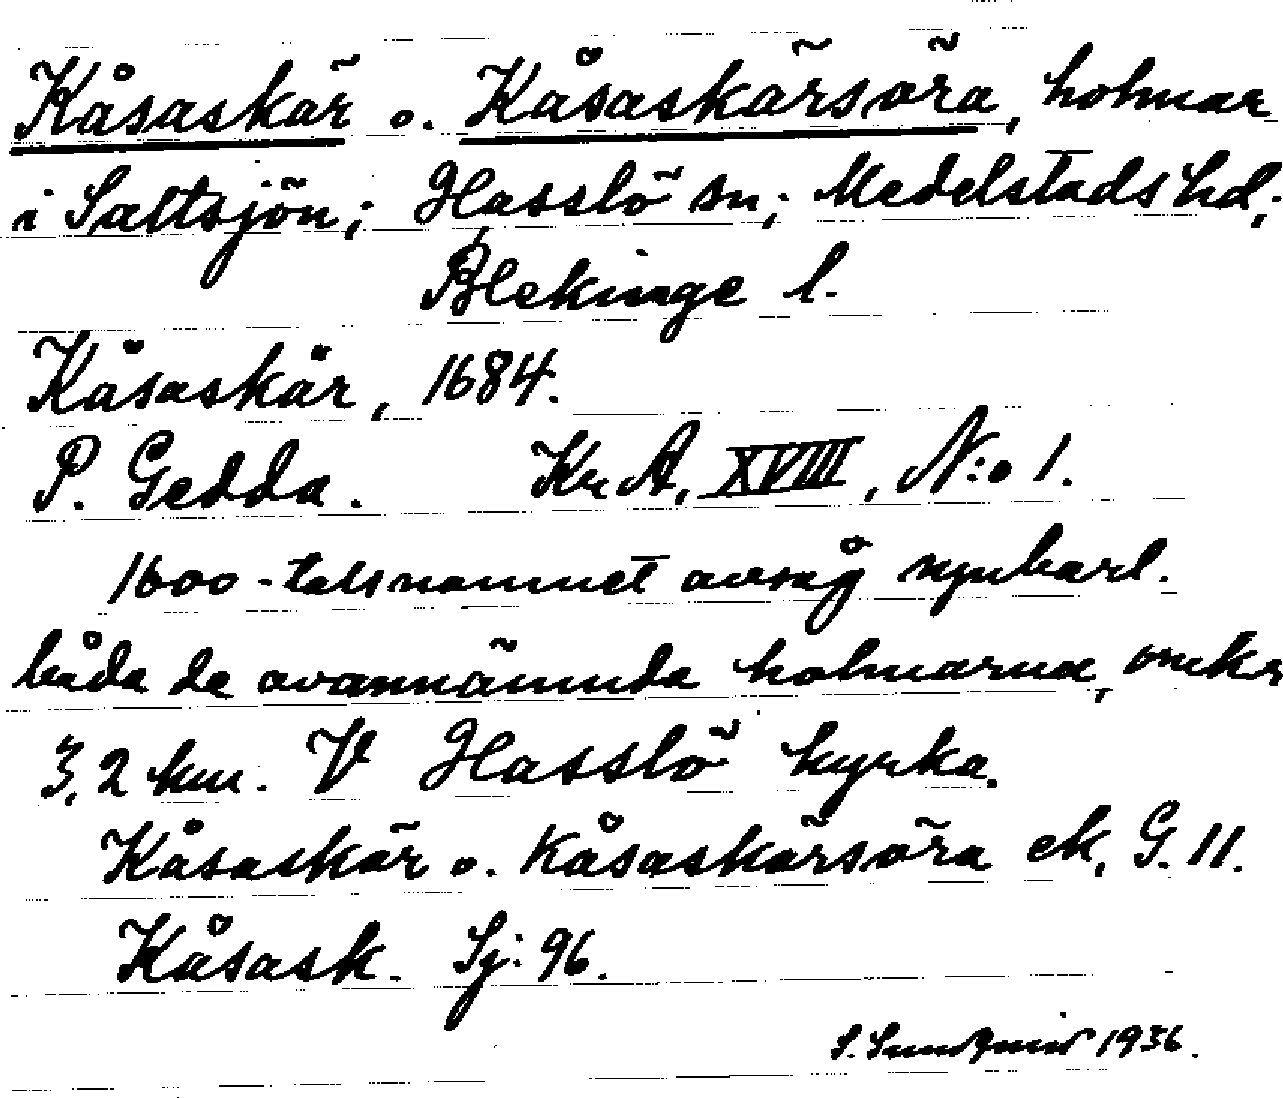 Kåsaskär o. Kåsaskärsöra, holmar
i Saltsjön; Hasslö sn; Medelstads hd;
Blekinge l.
Kåsaskär, 1684.
P. Gedda. Kr A, XVIII, N:o 1.
1600-talsnamnet avsåg uppenbarl.
båda de ovannämnda holmarna, omkr
3,2 km. V Hasslö kyrka.
Kåsaskär o. Kåsaskärsöra ek, G. 11.
Kåsask. Sj: 96.
S. Sundqvist 1936.